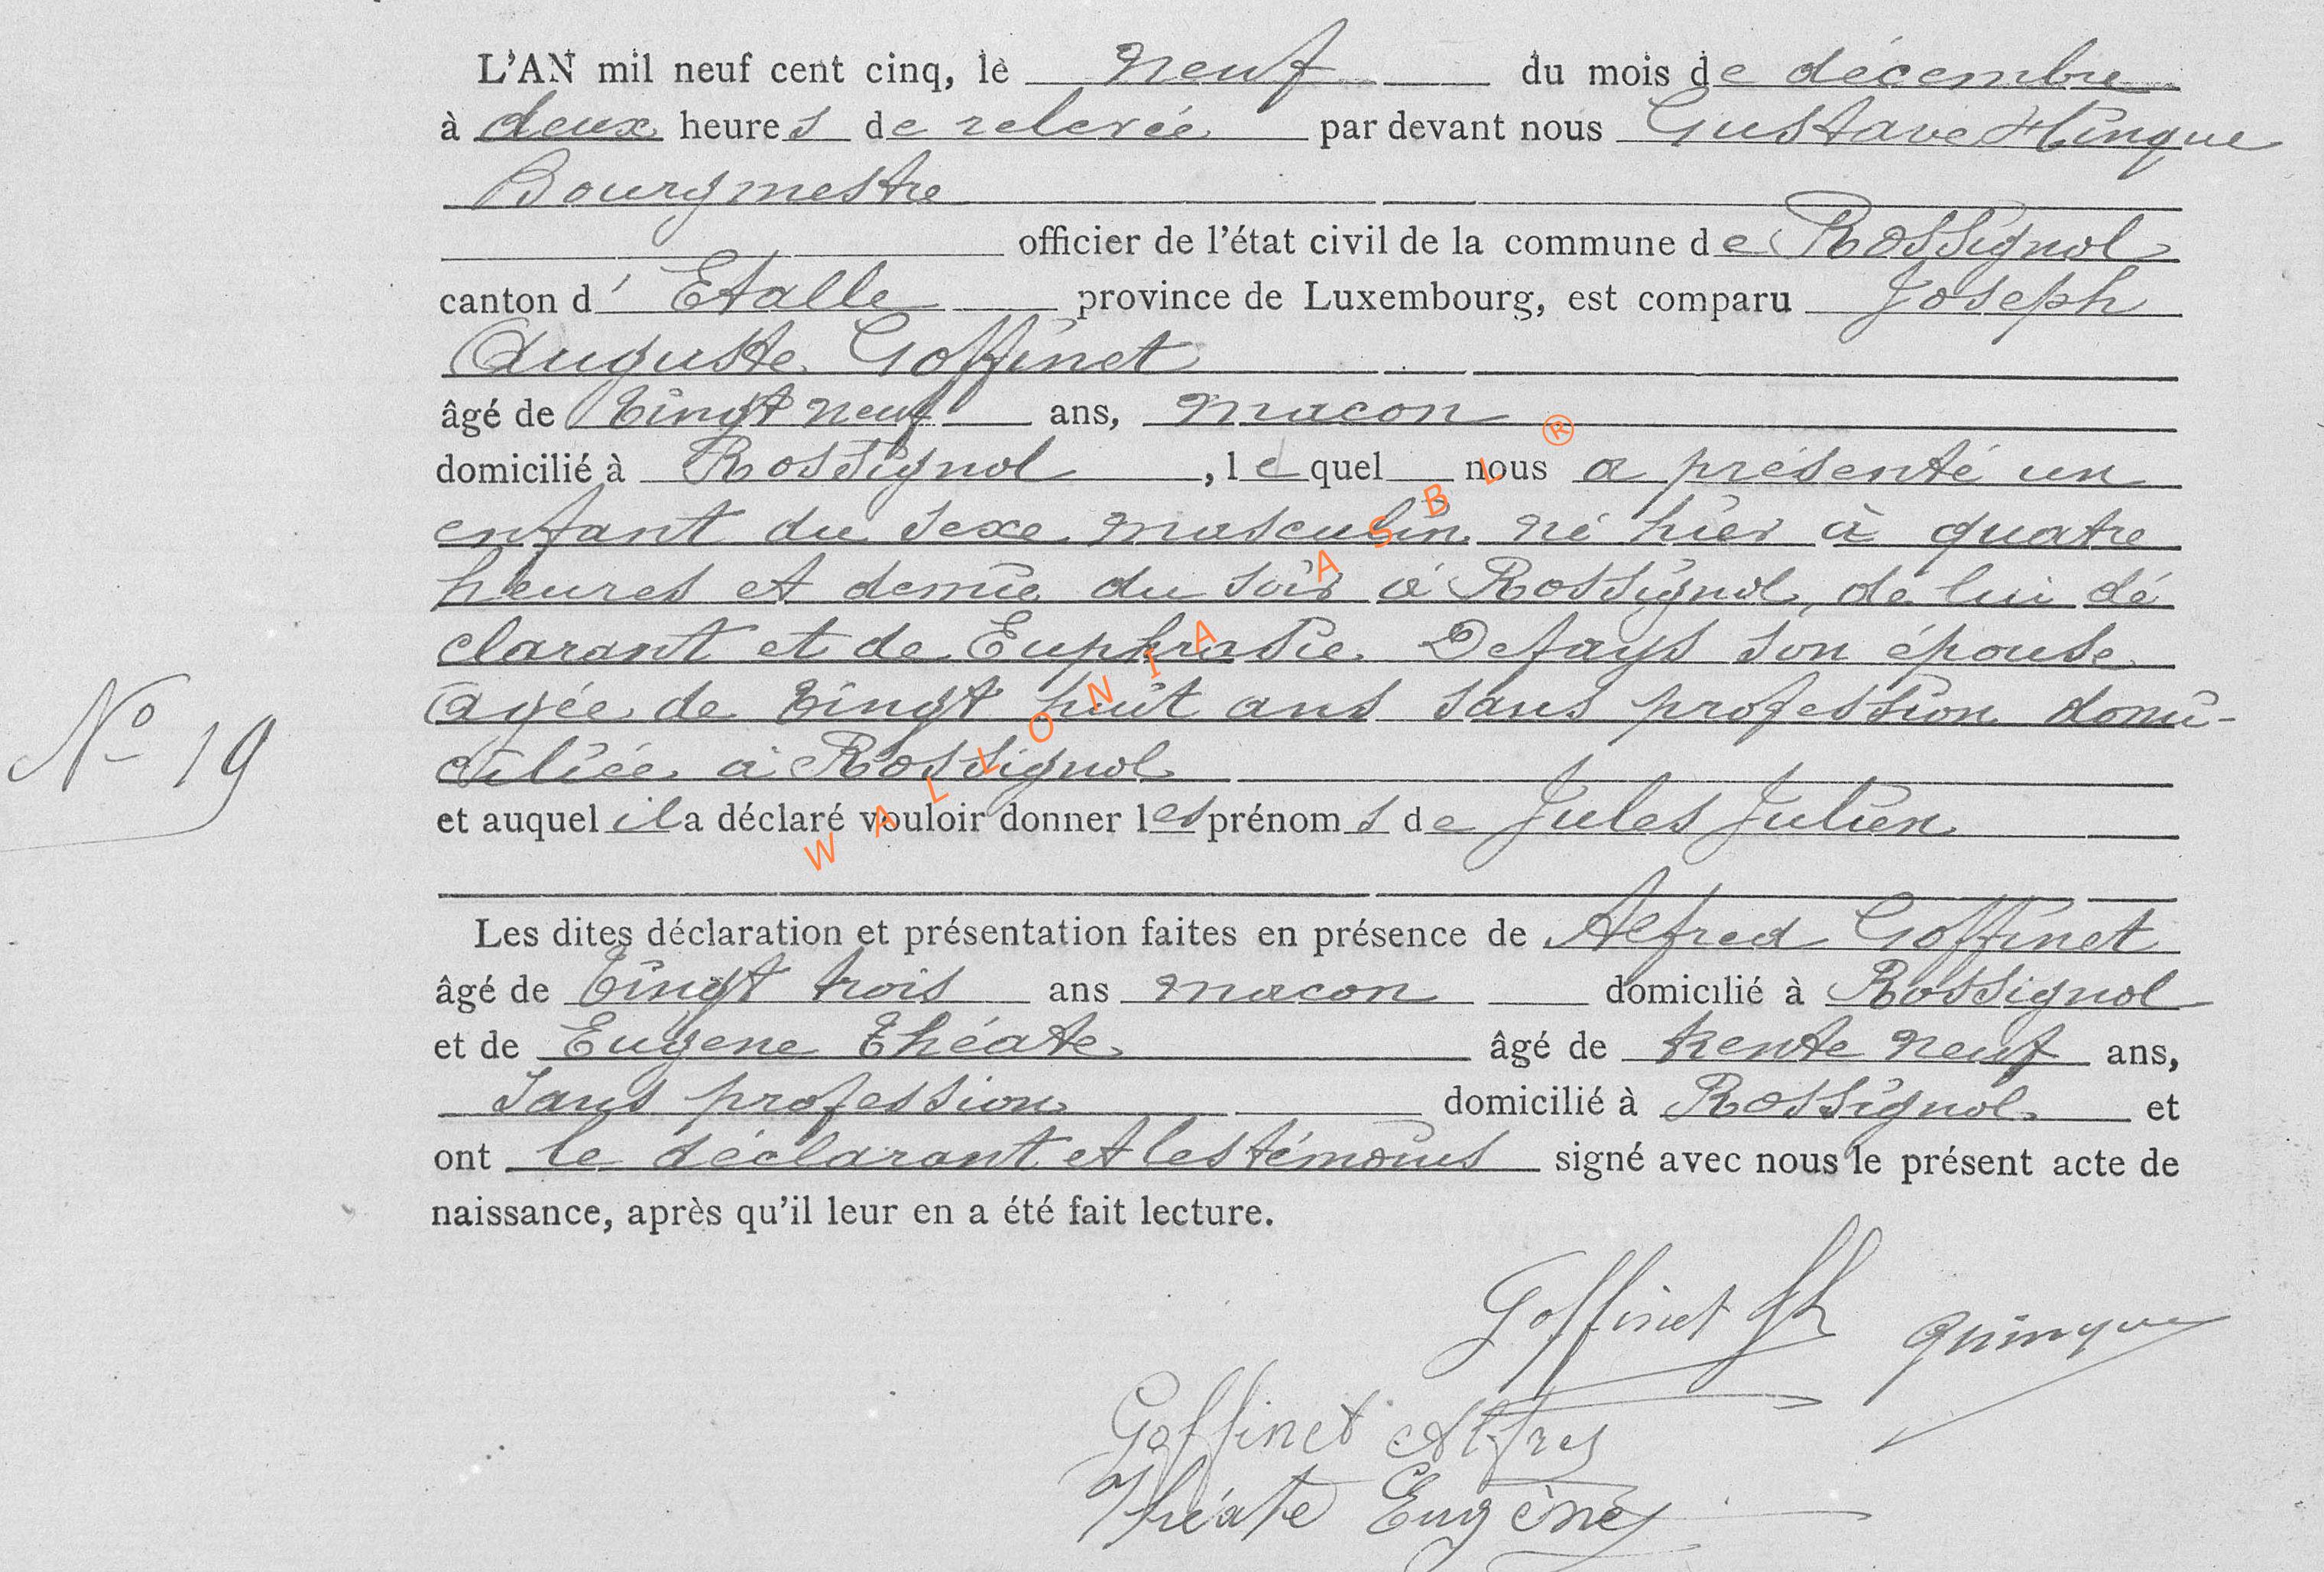 L'AN mil neuf cent cinq, le neuf du mois de décembre
à deux heures de relevée par devant nous Gustave Hinque
Bourgmestre
officier de l'état civil de la commune de Rossignol
canton d' Etalle province de Luxembourg, est comparu Joseph
Auguste Goffinet
âgé de vingt neuf ans, macon
domicilié à Rossignol, lequel nous a présenté un
enfant du sexe masculin né hier à quatre
heures et demie du soir à Rossignol, de lui dé
clarant et de Euphrasie Defays son épouse
agée de vingt huit ans sans profession domi-
ciliée à Rossignol
N° 19
et auquel il a déclaré vouloir donner les prénoms de Jules Julien
Les dites déclaration et présentation faites en présence de Alfred Goffinet
âgé de vingt trois ans macon domicilié à Rossignol
et de Eugene Théate âgé de trente neuf ans,
sans profession domicilié à Rossignol et
ont le déclarant et les témoins signé avec nous le présent acte de
naissance, après qu'il leur en a été fait lecture.
Goffinet Quinque
Goffinet Alfred
Théate Eugène
WALLONIA ASBL ®